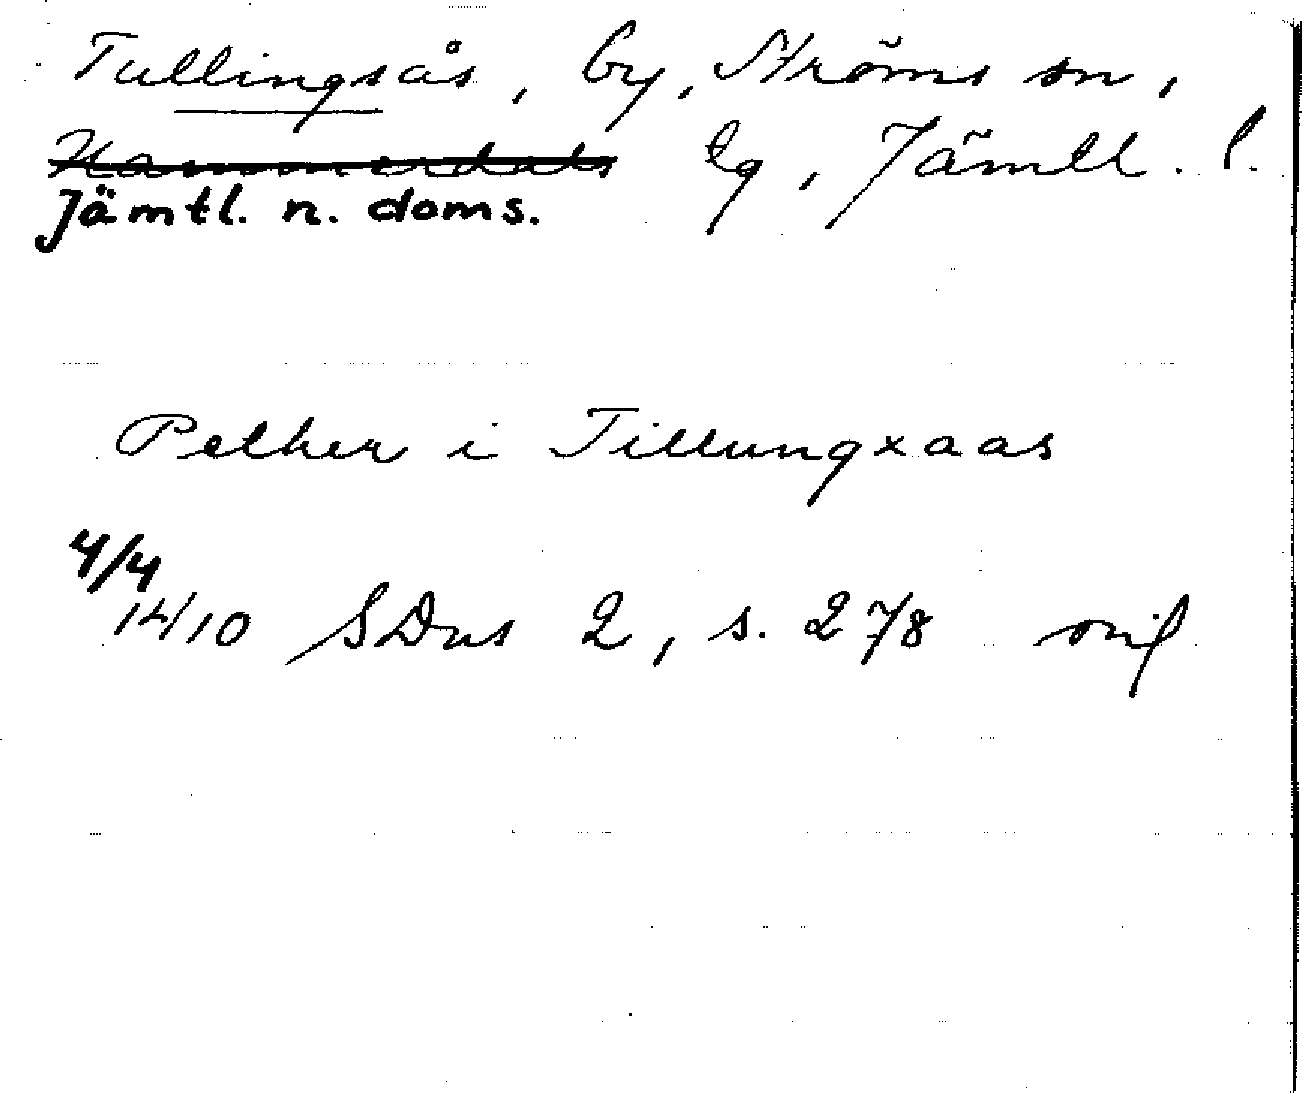 Tullingsås, by, Ströms sn,
Hammerdals tg, Jämtl. l.
Jämtl. n. doms.
Pether i Tillungxaas
4/4
14/10 SDns 2, s. 278 mif